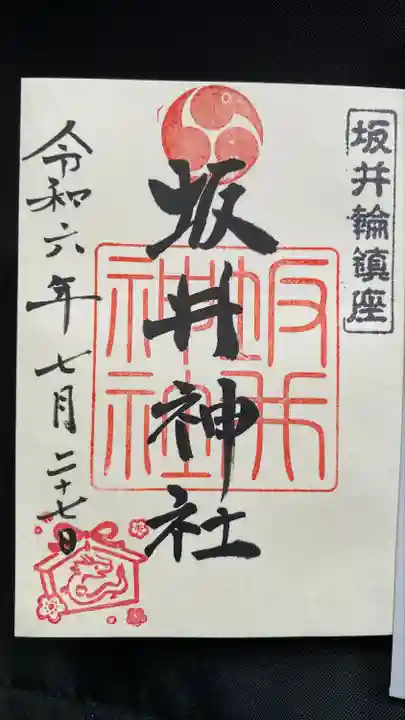 坂井輪鎮座
坂井神社
坂井
神社
令和六年七月二十七日